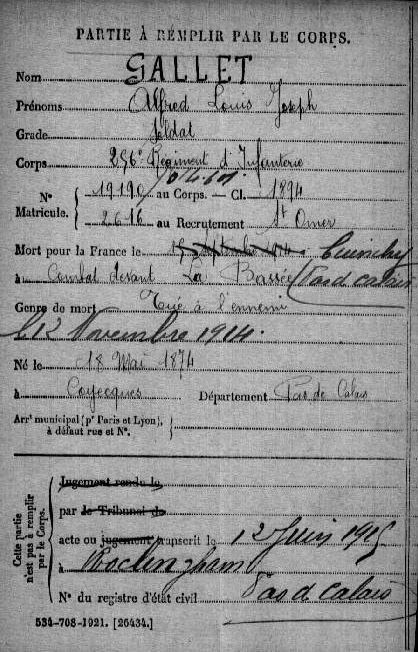 PARTIE À REMPLIR PAR LE CORPS.
Nom GALLET
Prénoms Alfred Louis Joseph
Grade Soldat
Corps 256e Régiment d'Infanterie
N° Matricule. 19190 au Corps. — Cl. 1894
2616 au Recrutement St Omer
Mort pour la France le 15 Septembre 1914 Cuinchy
à Combat devant La Bassée Pas de Calais
Genre de mort Tué à l'ennemi
le 12 Novembre 1914.
Né le 18 Mai 1874
à Coyecques Département Pas de Calais
Arrt municipal (pr Paris et Lyon),
à défaut rue et N°.
Cette partie n'est pas à remplir par le Corps.
Jugement rendu le
par le Tribunal de
acte ou jugement transcrit le 12 Juin 1915
à Roclingham
N° du registre d'état civil Pas de Calais
534-708-1921. [26434.]